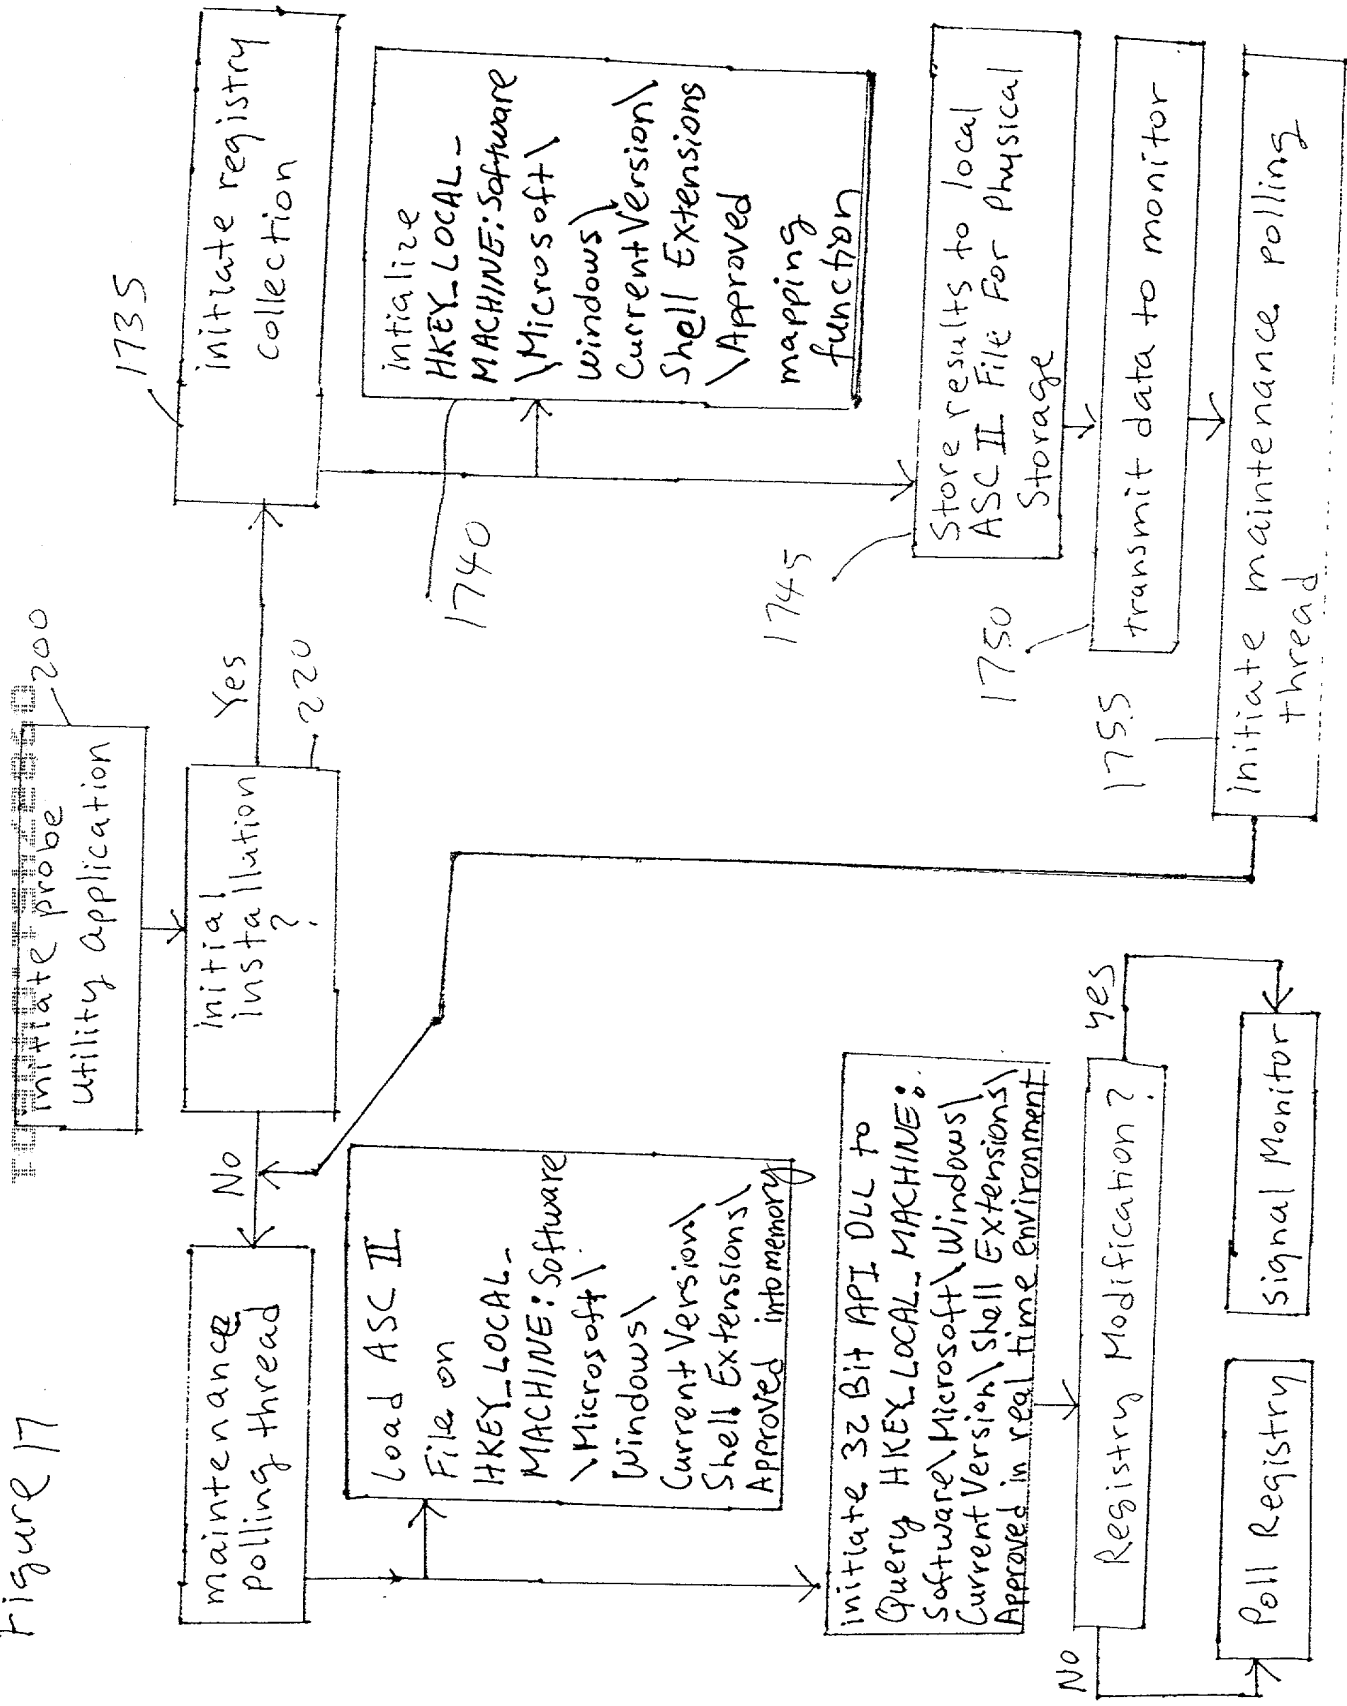 Figure 17
initiate probe
utility application
200
initial
installution
?
220
Yes
No
1735
initiate registry
collection
intialize
HKEY_LOCAL_
MACHINE:Software
\Microsoft\
Windows\
CurrentVersion\
Shell Extensions
\Approved
mapping
function
1740
1745
Store results to local
ASC II File For Physical
Storage
1750
transmit data to monitor
1755
initiate maintenance polling
thread
maintenance
polling thread
Load ASC II
File on
HKEY_LOCAL_
MACHINE:Software
\Microsoft\
Windows\
CurrentVersion\
Shell Extensions\
Approved into memory
initiate 32 Bit API DLL to
Query HKEY_LOCAL_MACHINE:
Software\Microsoft\Windows\
CurrentVersion\Shell Extensions\
Approved in real time environment
Registry Modification?
yes
No
Signal Monitor
Poll Registry